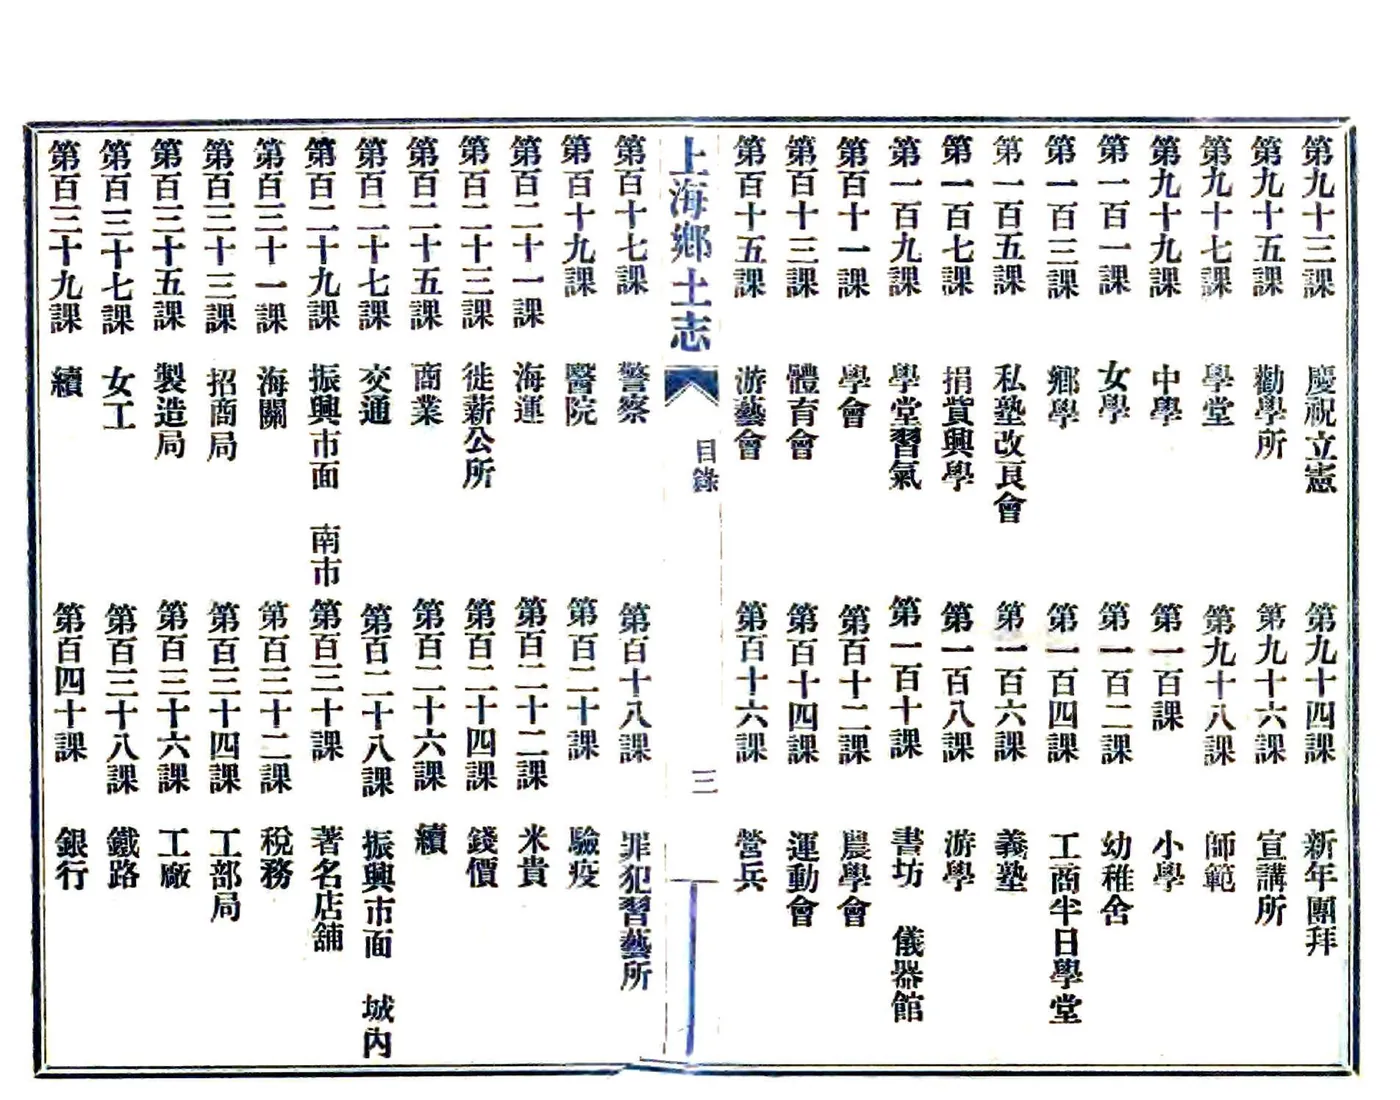 第九十三課　慶祝立憲　第九十四課　新年團拜
第九十五課　勸學所　第九十六課　宣講所
第九十七課　學堂　第九十八課　師範
第九十九課　中學　第一百課　小學
第一百一課　女學　第一百二課　幼稚舍
第一百三課　鄉學　第一百四課　工商半日學堂
第一百五課　私塾改良會　第一百六課　義塾
第一百七課　捐貲興學　第一百八課　游學
第一百九課　學堂習氣　第一百十課　書坊　儀器館
第百十一課　學會　第百十二課　農學會
第百十三課　體育會　第百十四課　運動會
第百十五課　游藝會　第百十六課　營兵
上海鄉土志　目錄　三
第百十七課　警察　第百十八課　罪犯習藝所
第百十九課　醫院　第百二十課　驗疫
第百二十一課　海運　第百二十二課　米貴
第百二十三課　徙薪公所　第百二十四課　錢價
第百二十五課　商業　第百二十六課　續
第百二十七課　交通　第百二十八課　振興市面　城內
第百二十九課　振興市面　南市　第百三十課　著名店舖
第百三十一課　海關　第百三十二課　稅務
第百三十三課　招商局　第百三十四課　工部局
第百三十五課　製造局　第百三十六課　工廠
第百三十七課　女工　第百三十八課　鐵路
第百三十九課　續　第百四十課　銀行